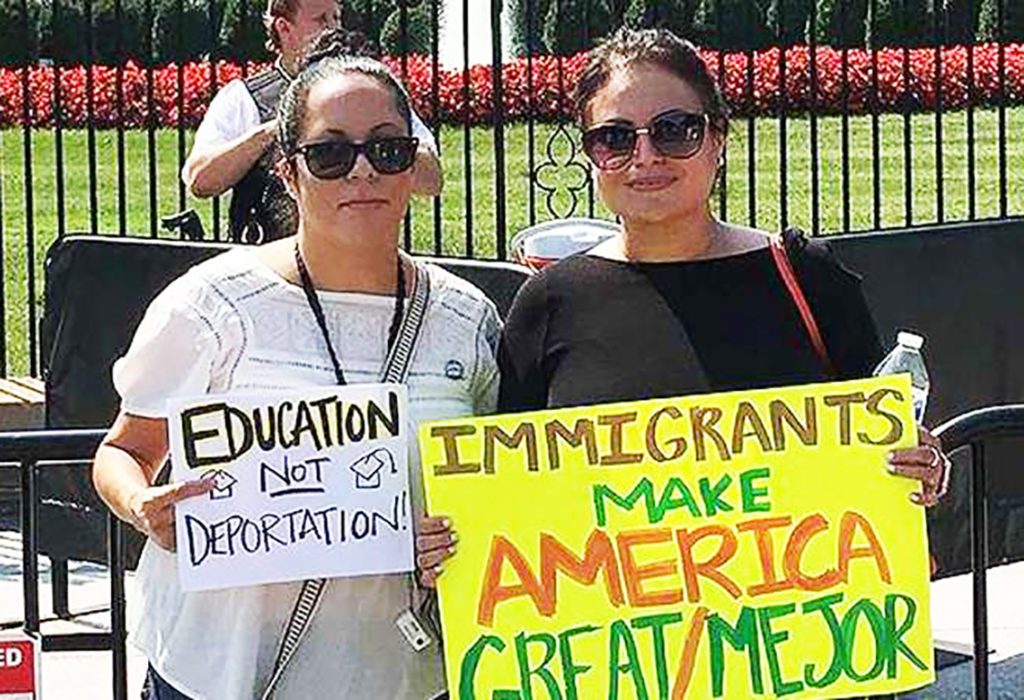 EDUCATION
NOT
DEPORTATION!
IMMIGRANTS
MAKE
AMERICA
GREAT/MEJOR
ED